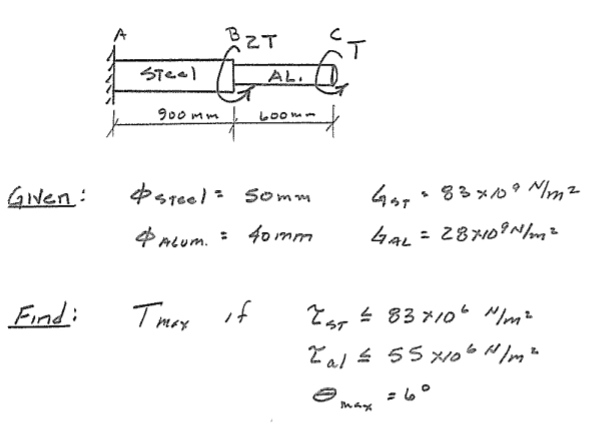 A B 2T C T
Steel AL.
900 mm 600 mm
Given: ϕ Steel = 50mm G ST = 83 x10⁹ N/m²
ϕ Alum. = 40mm G AL = 28x10⁹ N/m²
Find: T max if τ ST ≤ 83 x10⁶ N/m²
τ al ≤ 55 x10⁶ N/m²
θ max = 6°